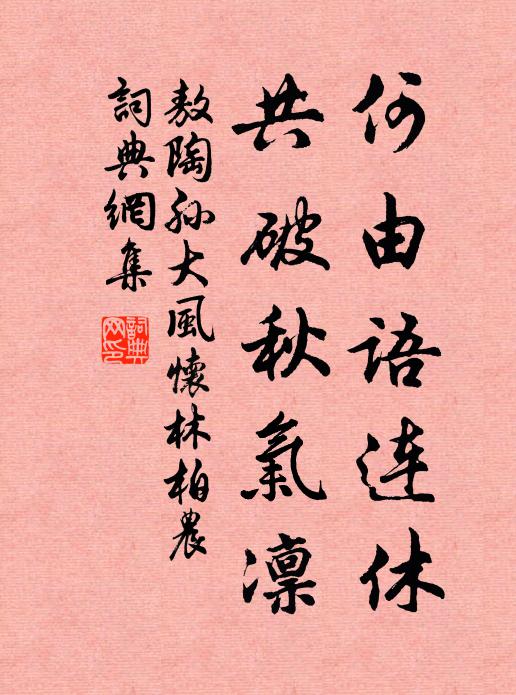 何由語連休
共破秋氣凜
敖陶孫大風懷林柏農
詞典網集
詞典網印